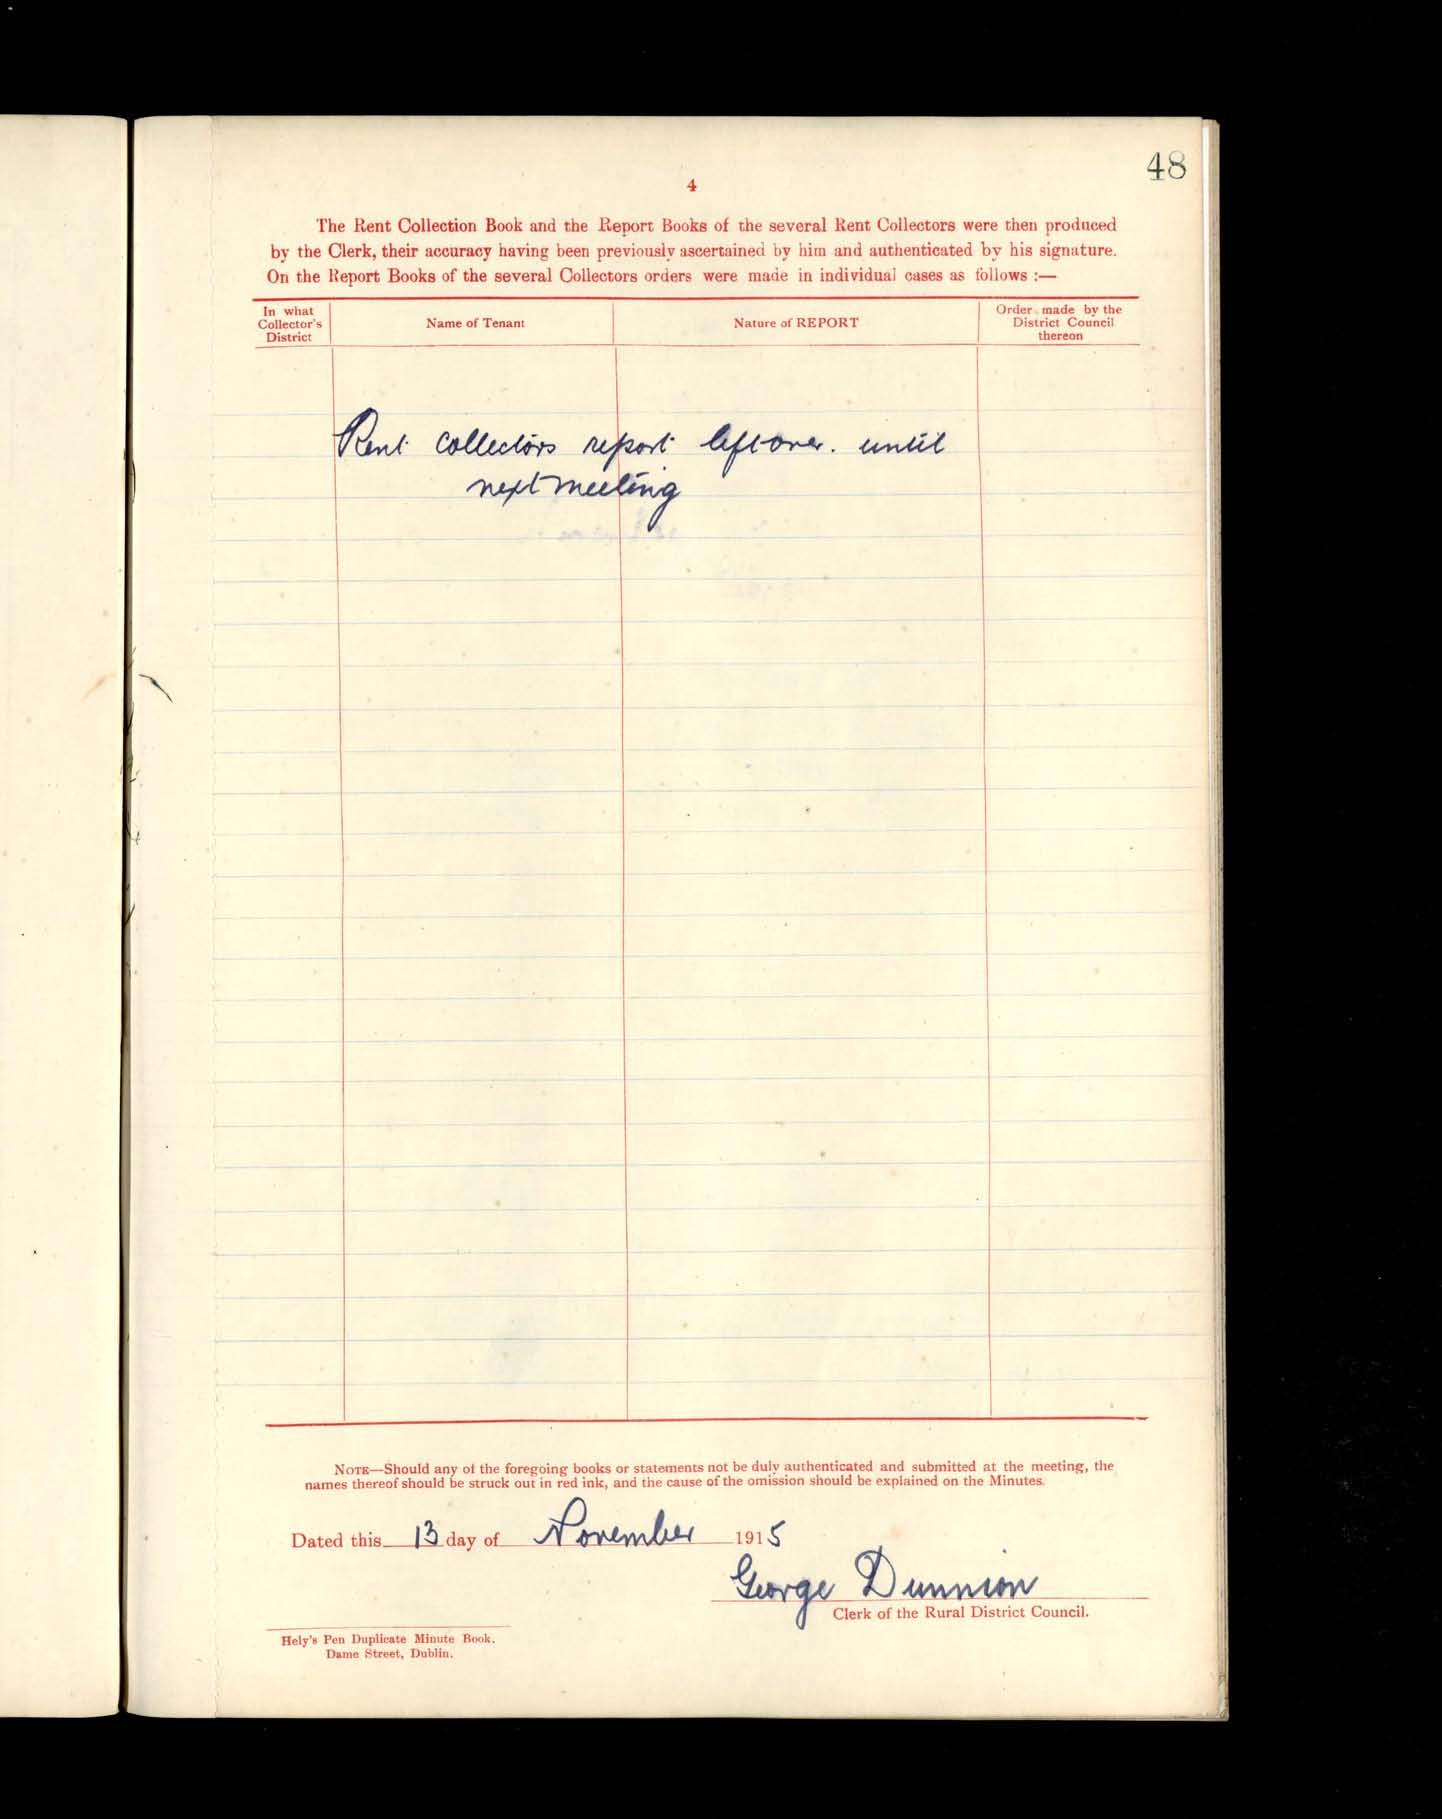 48
4
The Rent Collection Book and the Report Books of the several Rent Collectors were then produced
by the Clerk, their accuracy having been previously ascertained by him and authenticated by his signature.
On the Report Books of the several Collectors orders were made in individual cases as follows :—
In what
Collector's
District
Name of Tenant
Nature of REPORT
Order made by the
District Council
thereon
Rent collectors report left over. until
next meeting
NOTE—Should any of the foregoing books or statements not be duly authenticated and submitted at the meeting, the
names thereof should be struck out in red ink, and the cause of the omission should be explained on the Minutes.
Dated this 13 day of November 1915
George Dunnion
Clerk of the Rural District Council.
Hely's Pen Duplicate Minute Book.
Dame Street, Dublin.